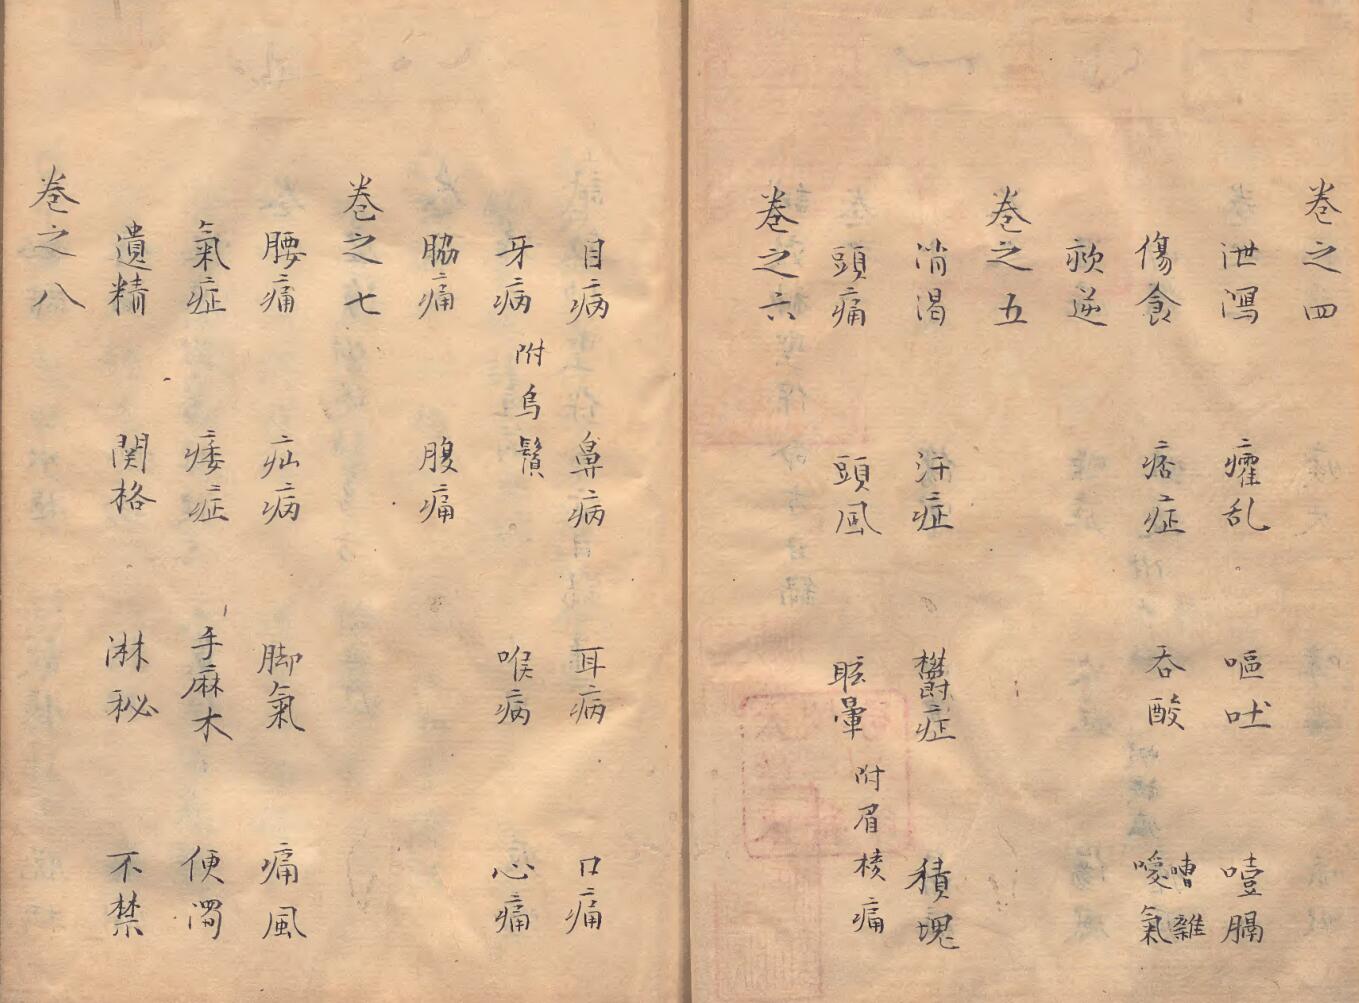 卷之四
泄瀉 癨乱 嘔吐 噎膈
傷食 痞症 吞酸 嘈雜 噯氣
欬逆
卷之五
消渴 汗症 欝症 積塊
頭痛 頭風 眩暈 附眉棱痛
卷之六
目病 鼻病 耳病 口痛
牙病 附烏鬚 喉病 心痛
脇痛 腹痛
卷之七
腰痛 疝病 脚氣 痛風
氣症 痿症 手麻木 便濁
遺精 関格 淋秘 不禁
卷之八